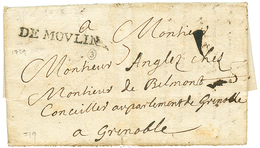 a
Monsieur
DE MOVLIN
Monsieur Anglez chez
Monsieur de Belmont
Conceiller au parlement de Grenoble
a Grenoble